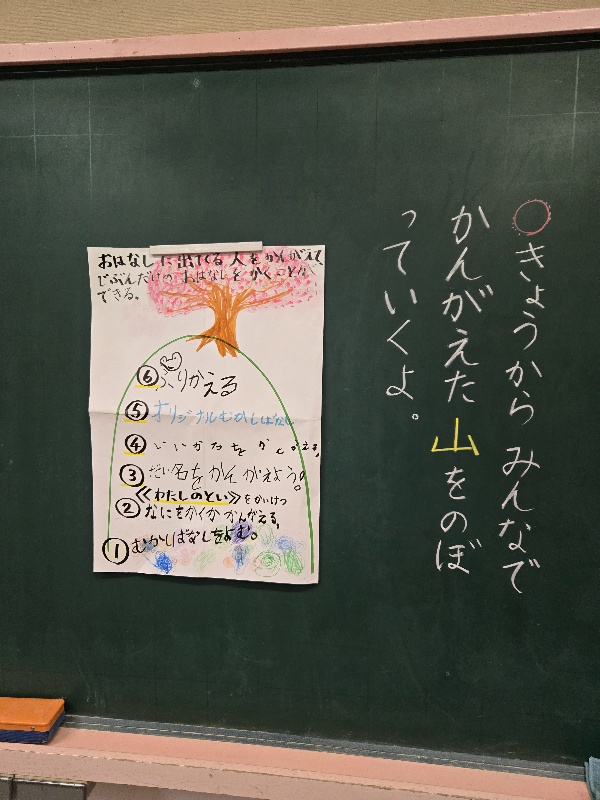 ○きょうから みんなで
かんがえた 山をのぼ
っていくよ。
おはなしに出てくる人をかんがえて、
じぶんだけの おはなしを かくことが
できる。
⑥ふりかえる
⑤オリジナルむかしばなし
④いいかたをかんがえる。
③だい名をかんがえよう。
≪わたしのとい≫をかいけつ
②なにをかくか かんがえる。
①むかしばなしをよむ。